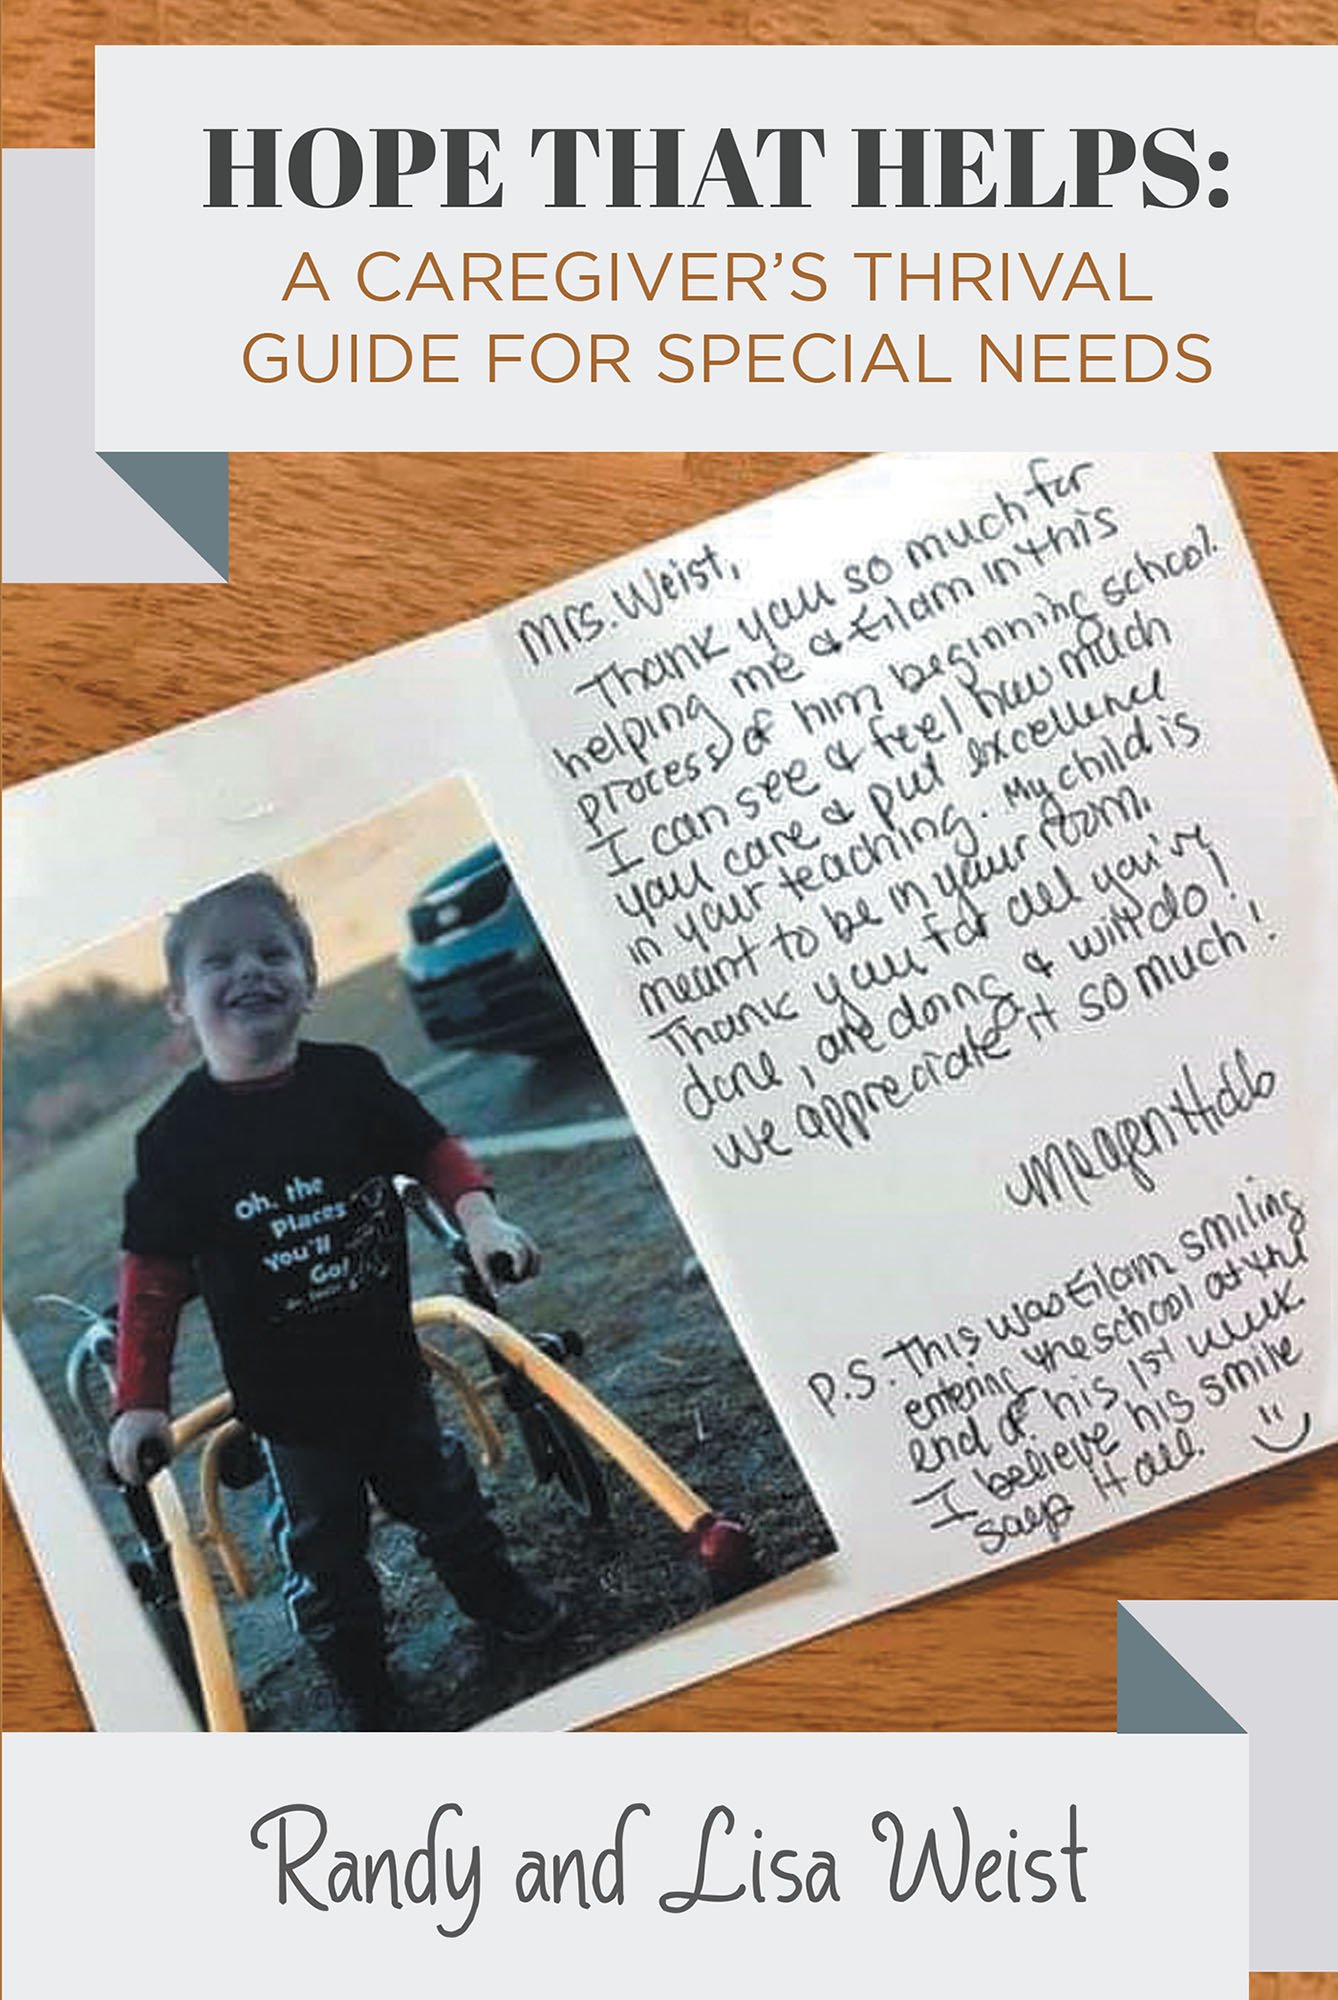 HOPE THAT HELPS:
A CAREGIVER'S THRIVAL
GUIDE FOR SPECIAL NEEDS
Mrs. Weist,
Thank you so much for
helping me & Eilam in this
process of him beginning school.
I can see & feel how much
you care & put excellence
in your teaching. My child is
meant to be in your room.
Thank you for all you've
done, are doing & will do!
We appreciate it so much!
Meagen
P.S. This was Eilam smiling
entering the school at the
end of his 1st week.
I believe his smile
says it all.
Oh, the
places
You'll
Go!
Randy and Lisa Weist